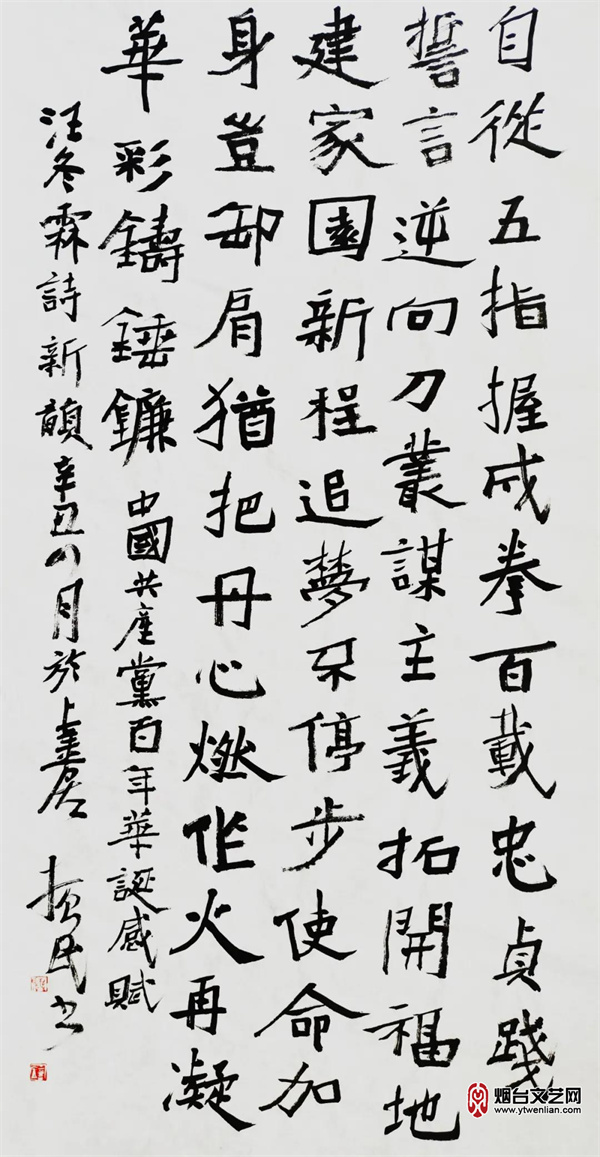 自從五指握成拳百載忠貞踐
誓言逆向刀叢謀主義拓開福地
建家園新程追夢不停步使命加
身豈卸肩猶把丹心燃作火再凝
華彩鑄錘鐮
中國共產黨百年華誕感賦
汪冬霖詩新韻辛丑四月於上
振民书
烟台文艺网
www.ytwenlian.com